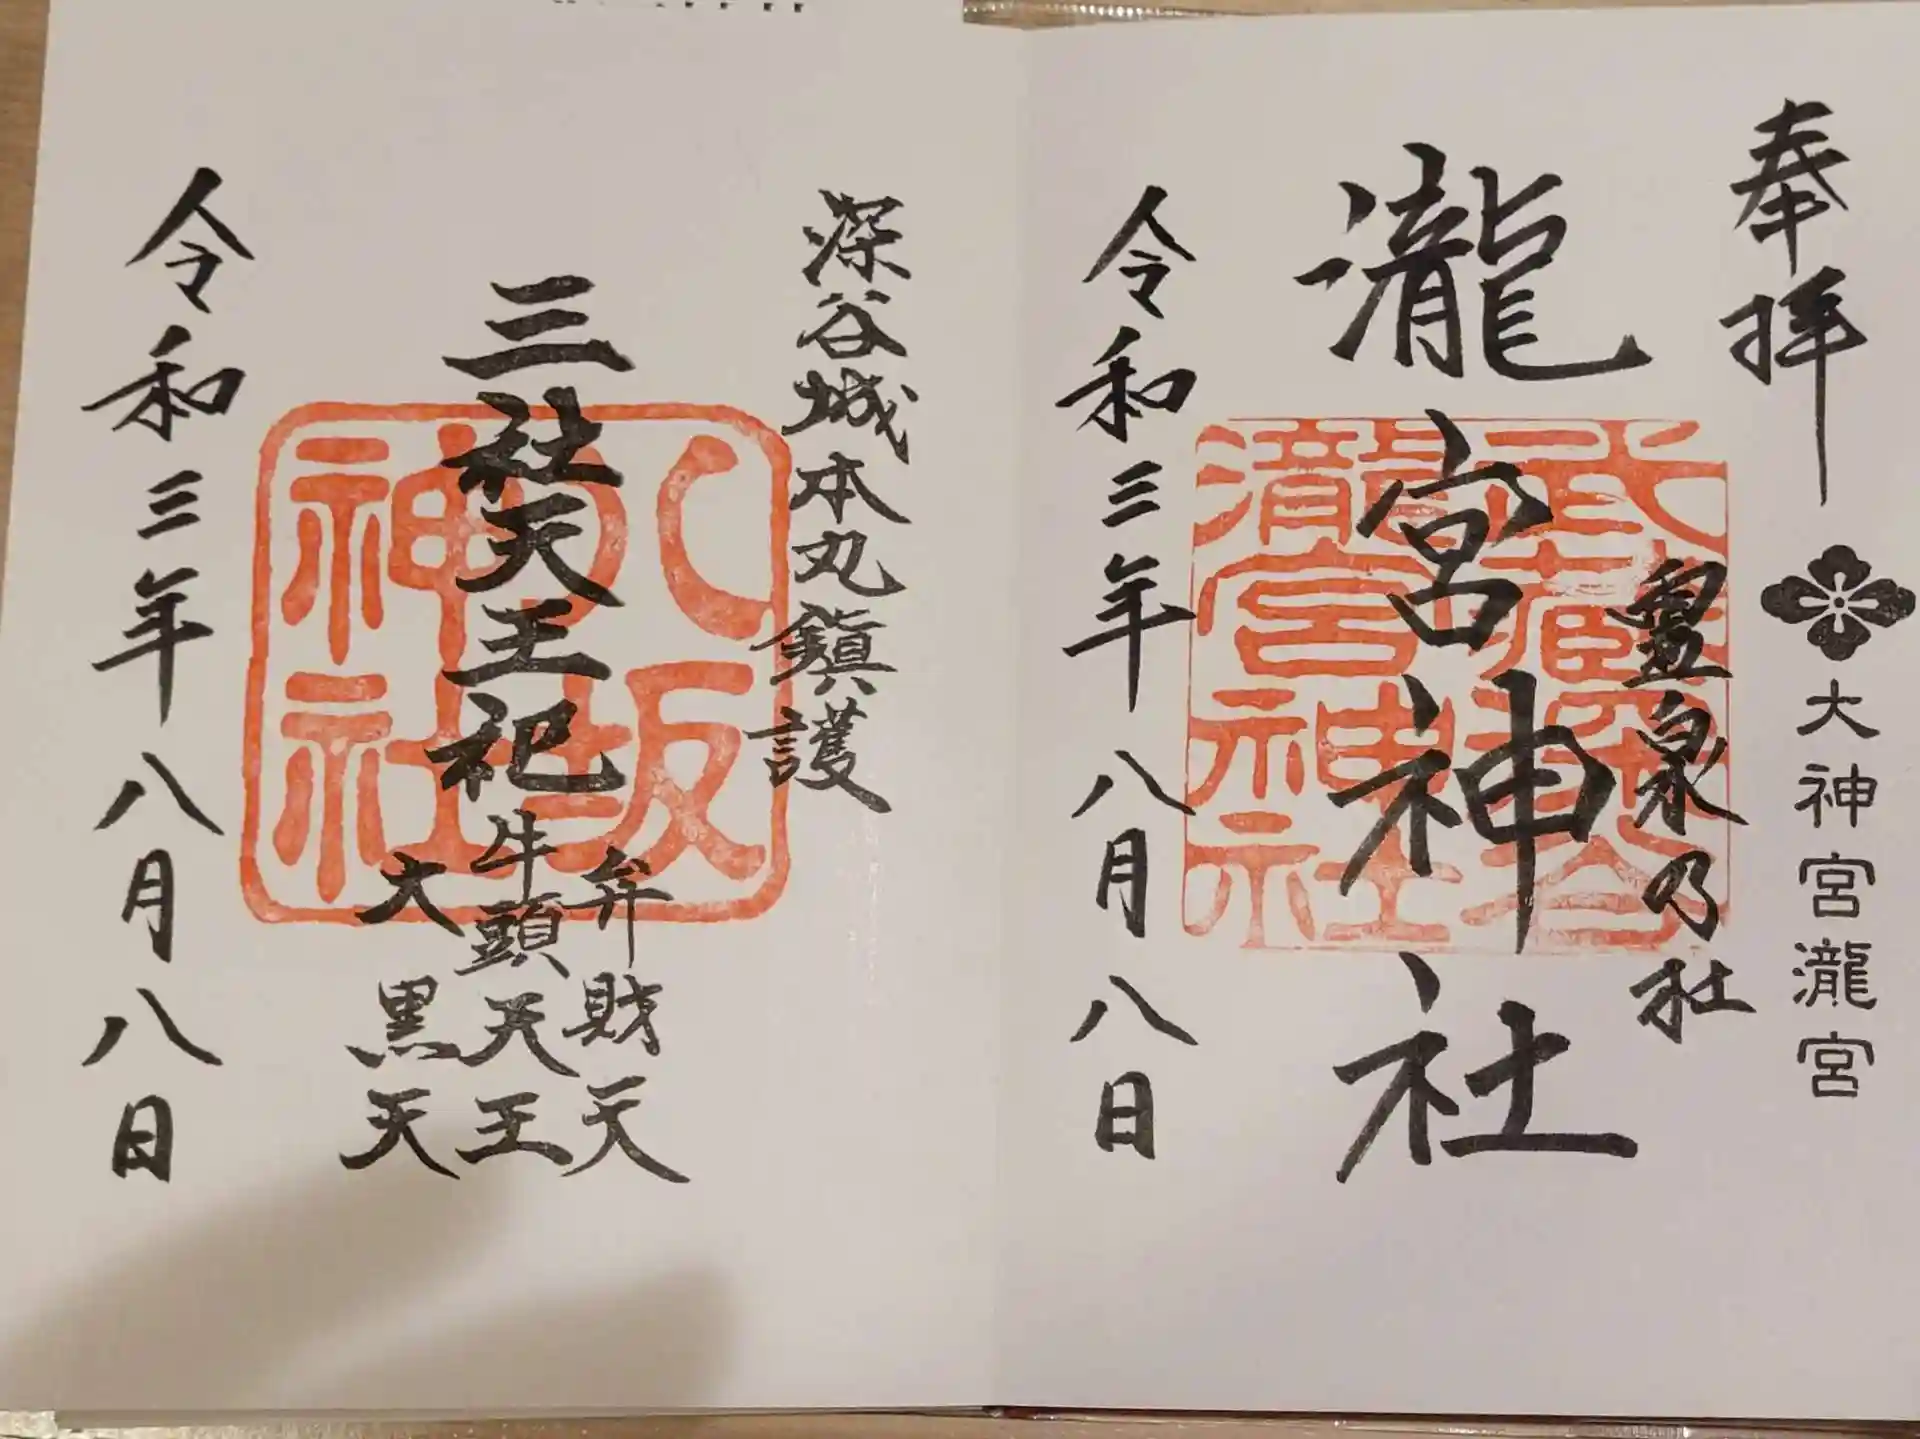 奉拝
大神宮瀧宮
霊泉乃社
瀧宮神社
武蔵深谷
瀧宮神社
令和三年八月八日
深谷城本丸鎮護
三社天王祀
八坂
神社
弁財天
牛頭天王
大黒天
令和三年八月八日